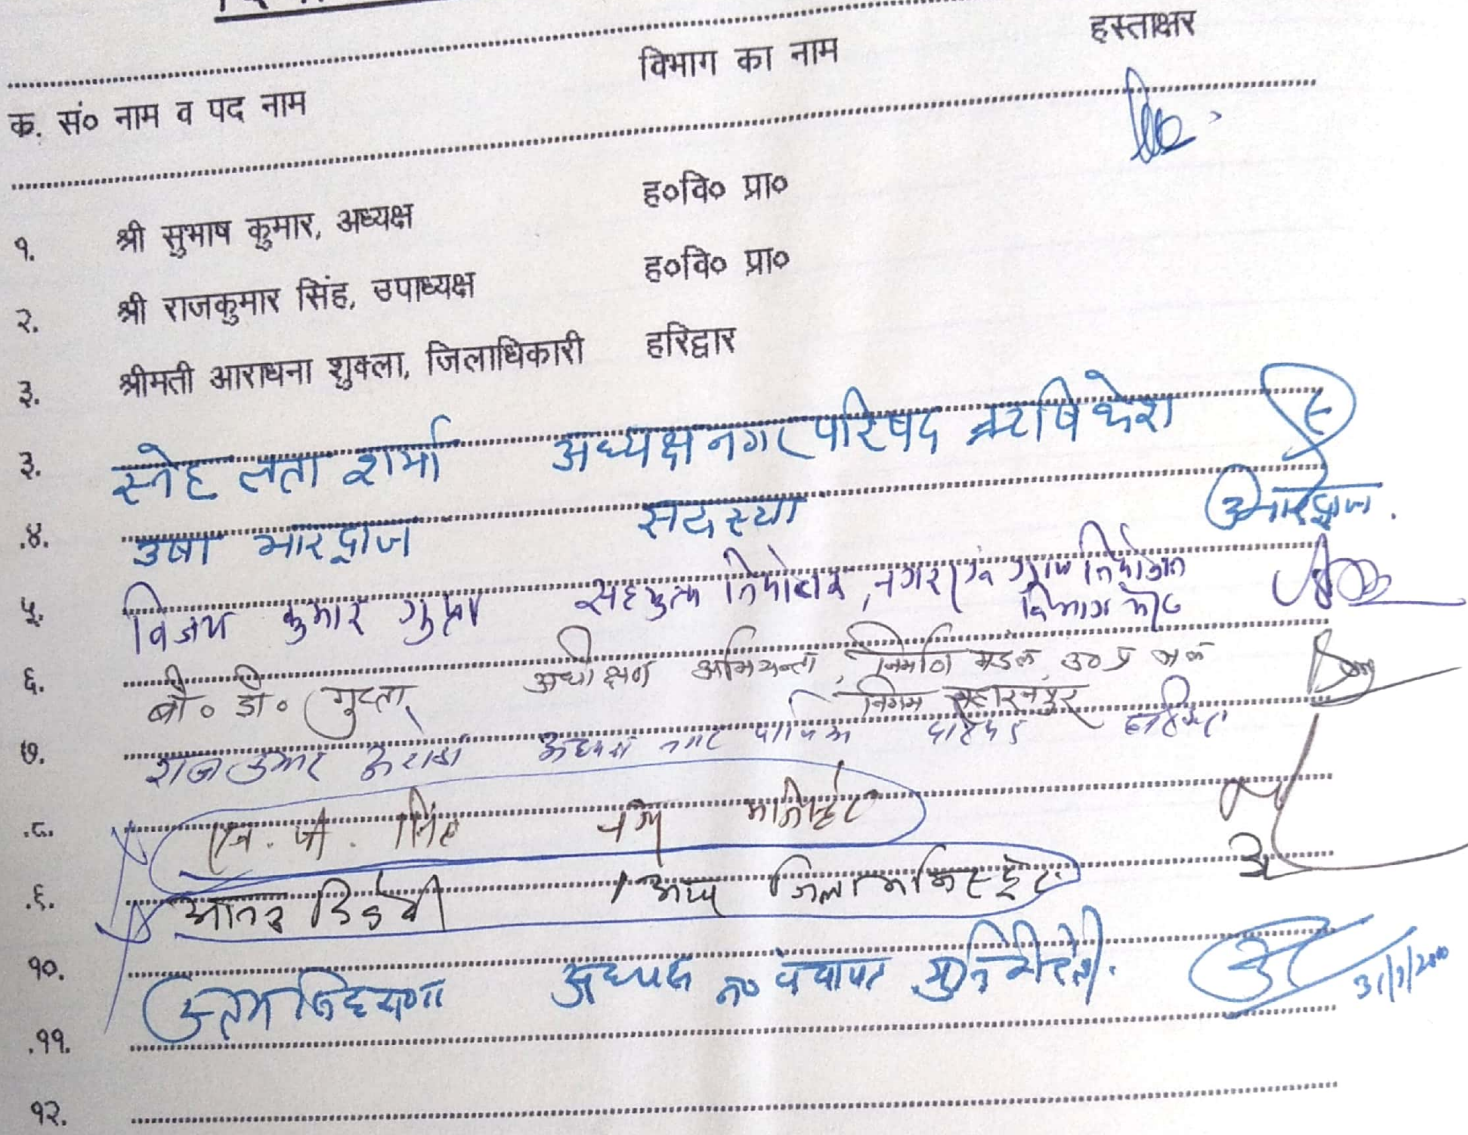 विभाग का नाम हस्ताक्षर
क. सं० नाम व पद नाम
१. श्री सुभाष कुमार, अध्यक्ष ह०वि० प्रा०
२. श्री राजकुमार सिंह, उपाध्यक्ष ह०वि० प्रा०
३. श्रीमती आराधना शुक्ला, जिलाधिकारी हरिद्वार
३. स्नेह लता शर्मा अध्यक्ष नगर परिषद ऋषिकेश
.४. उषा भारद्वाज सदस्या उभारद्वाज.
५. विजय कुमार गुप्ता सहयुक्त नियोजक, नगर एवं ग्राम नियोजन
विभाग
६. बी० डी० गुप्ता, अधीक्षण अभियन्ता, निर्माण मंडल उ०प्र जल
निगम सहारनपुर
७. राजकुमार अरोड़ा अध्यक्ष नगर पालिका परिषद हरिद्वार
.८. सिंह नगर मजिस्ट्रेट
.९. अपर जिला मजिस्ट्रेट
१०. उत्तम सिंह अध्यक्ष न० पंचायत मुनि की रेती.
31/3/2000
.११.
१२.